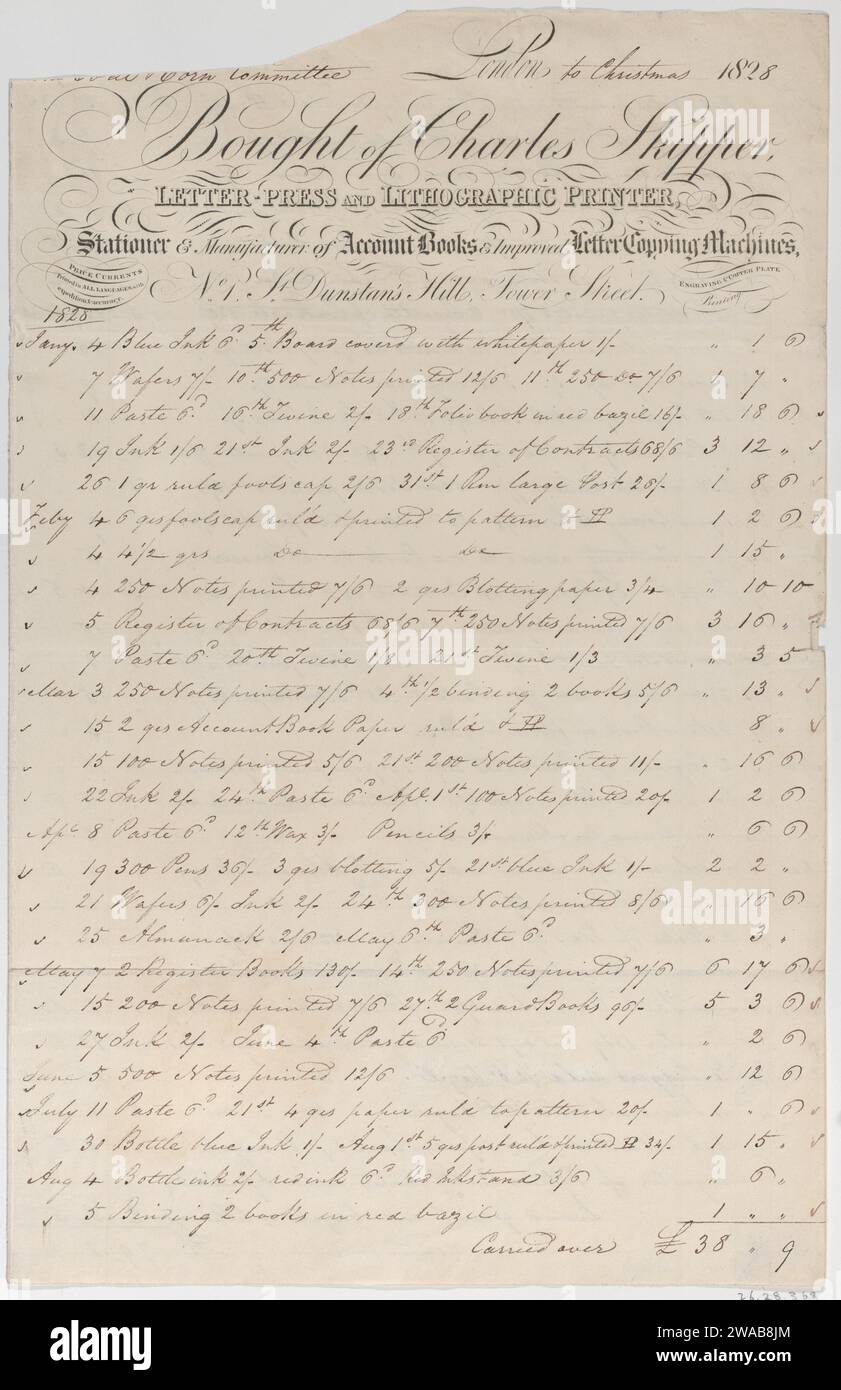 Corn Committee London to Christmas 1828
Bought of Charles Skipper,
LETTER-PRESS AND LITHOGRAPHIC PRINTER,
Stationer & Manufacturer of Account Books & Improved Letter Copying Machines,
PRICE CURRENTS Printed in ALL LANGUAGES with expedition & accuracy.
No. 1, St. Dunstan's Hill, Tower Street.
ENGRAVING & COPPER PLATE Printing
1828
Jany. 4 Blue Ink 6d 5th Board coverd with whitepaper 1/- " 1 6
7 Wafers 7/- 10th 500 Notes printed 12/6 11th 250 Do 7/6 1 7 "
11 Paste 6d 16th Twine 2/- 18th Folio book in red bazil 16/- " 18 6
19 Ink 1/6 21st Ink 2/- 23rd Register of Contracts 68/6 3 12 "
26 1 qr ruld foolscap 2/6 31st 1 Rm large Post 26/- 1 8 6
Feby 4 6 qrs foolscap ruld & printed to pattern 1 2 6
4 4 1/2 qrs Do Do 1 15 "
4 250 Notes printed 7/6 2 qrs Blotting paper 3/4 " 10 10
5 Register of Contracts 68/6 7th 250 Notes printed 7/6 3 16 "
7 Paste 6d 20th Twine 1/8 21st Twine 1/3 " 3 5
Mar 3 250 Notes printed 7/6 4th 1/2 binding 2 books 5/6 " 13 "
15 2 qrs Account Book Paper ruld 8 "
15 100 Notes printed 5/6 21st 200 Notes printed 11/- " 16 6
22 Ink 2/- 24th Paste 6d Apl. 1st 100 Notes printed 20/- 1 2 6
Apl 8 Paste 6d 12th Wax 3/- Pencils 3/- " 6 6
19 300 Pens 36/- 3 qrs blotting 5/- 21st blue Ink 1/- 2 2 "
21 Wafers 6/- Ink 2/- 24th 300 Notes printed 8/6 " 16 6
25 Almanack 2/6 May 6th Paste 6d " 3 "
May 7 2 Register Books 130/- 14th 250 Notes printed 7/6 6 17 6
15 200 Notes printed 7/6 27th 2 Guard Books 96/- 5 3 6
27 Ink 2/- June 4th Paste 6d " 2 6
June 5 500 Notes printed 12/6 " 12 6
July 11 Paste 6d 21st 4 qrs paper ruld to pattern 20/- 1 " 6
30 Bottle blue Ink 1/- Aug 1st 5 qrs post ruld & printed 34/- 1 15 "
Aug 4 Bottle ink 2/- red ink 6d Red Inkstand 3/6 " 6 "
5 Binding 2 books in red bazil 1 " "
Carried over £ 38 " 9
26.28.368
alamy
www.alamy.com
Image ID: 2WAB8JM